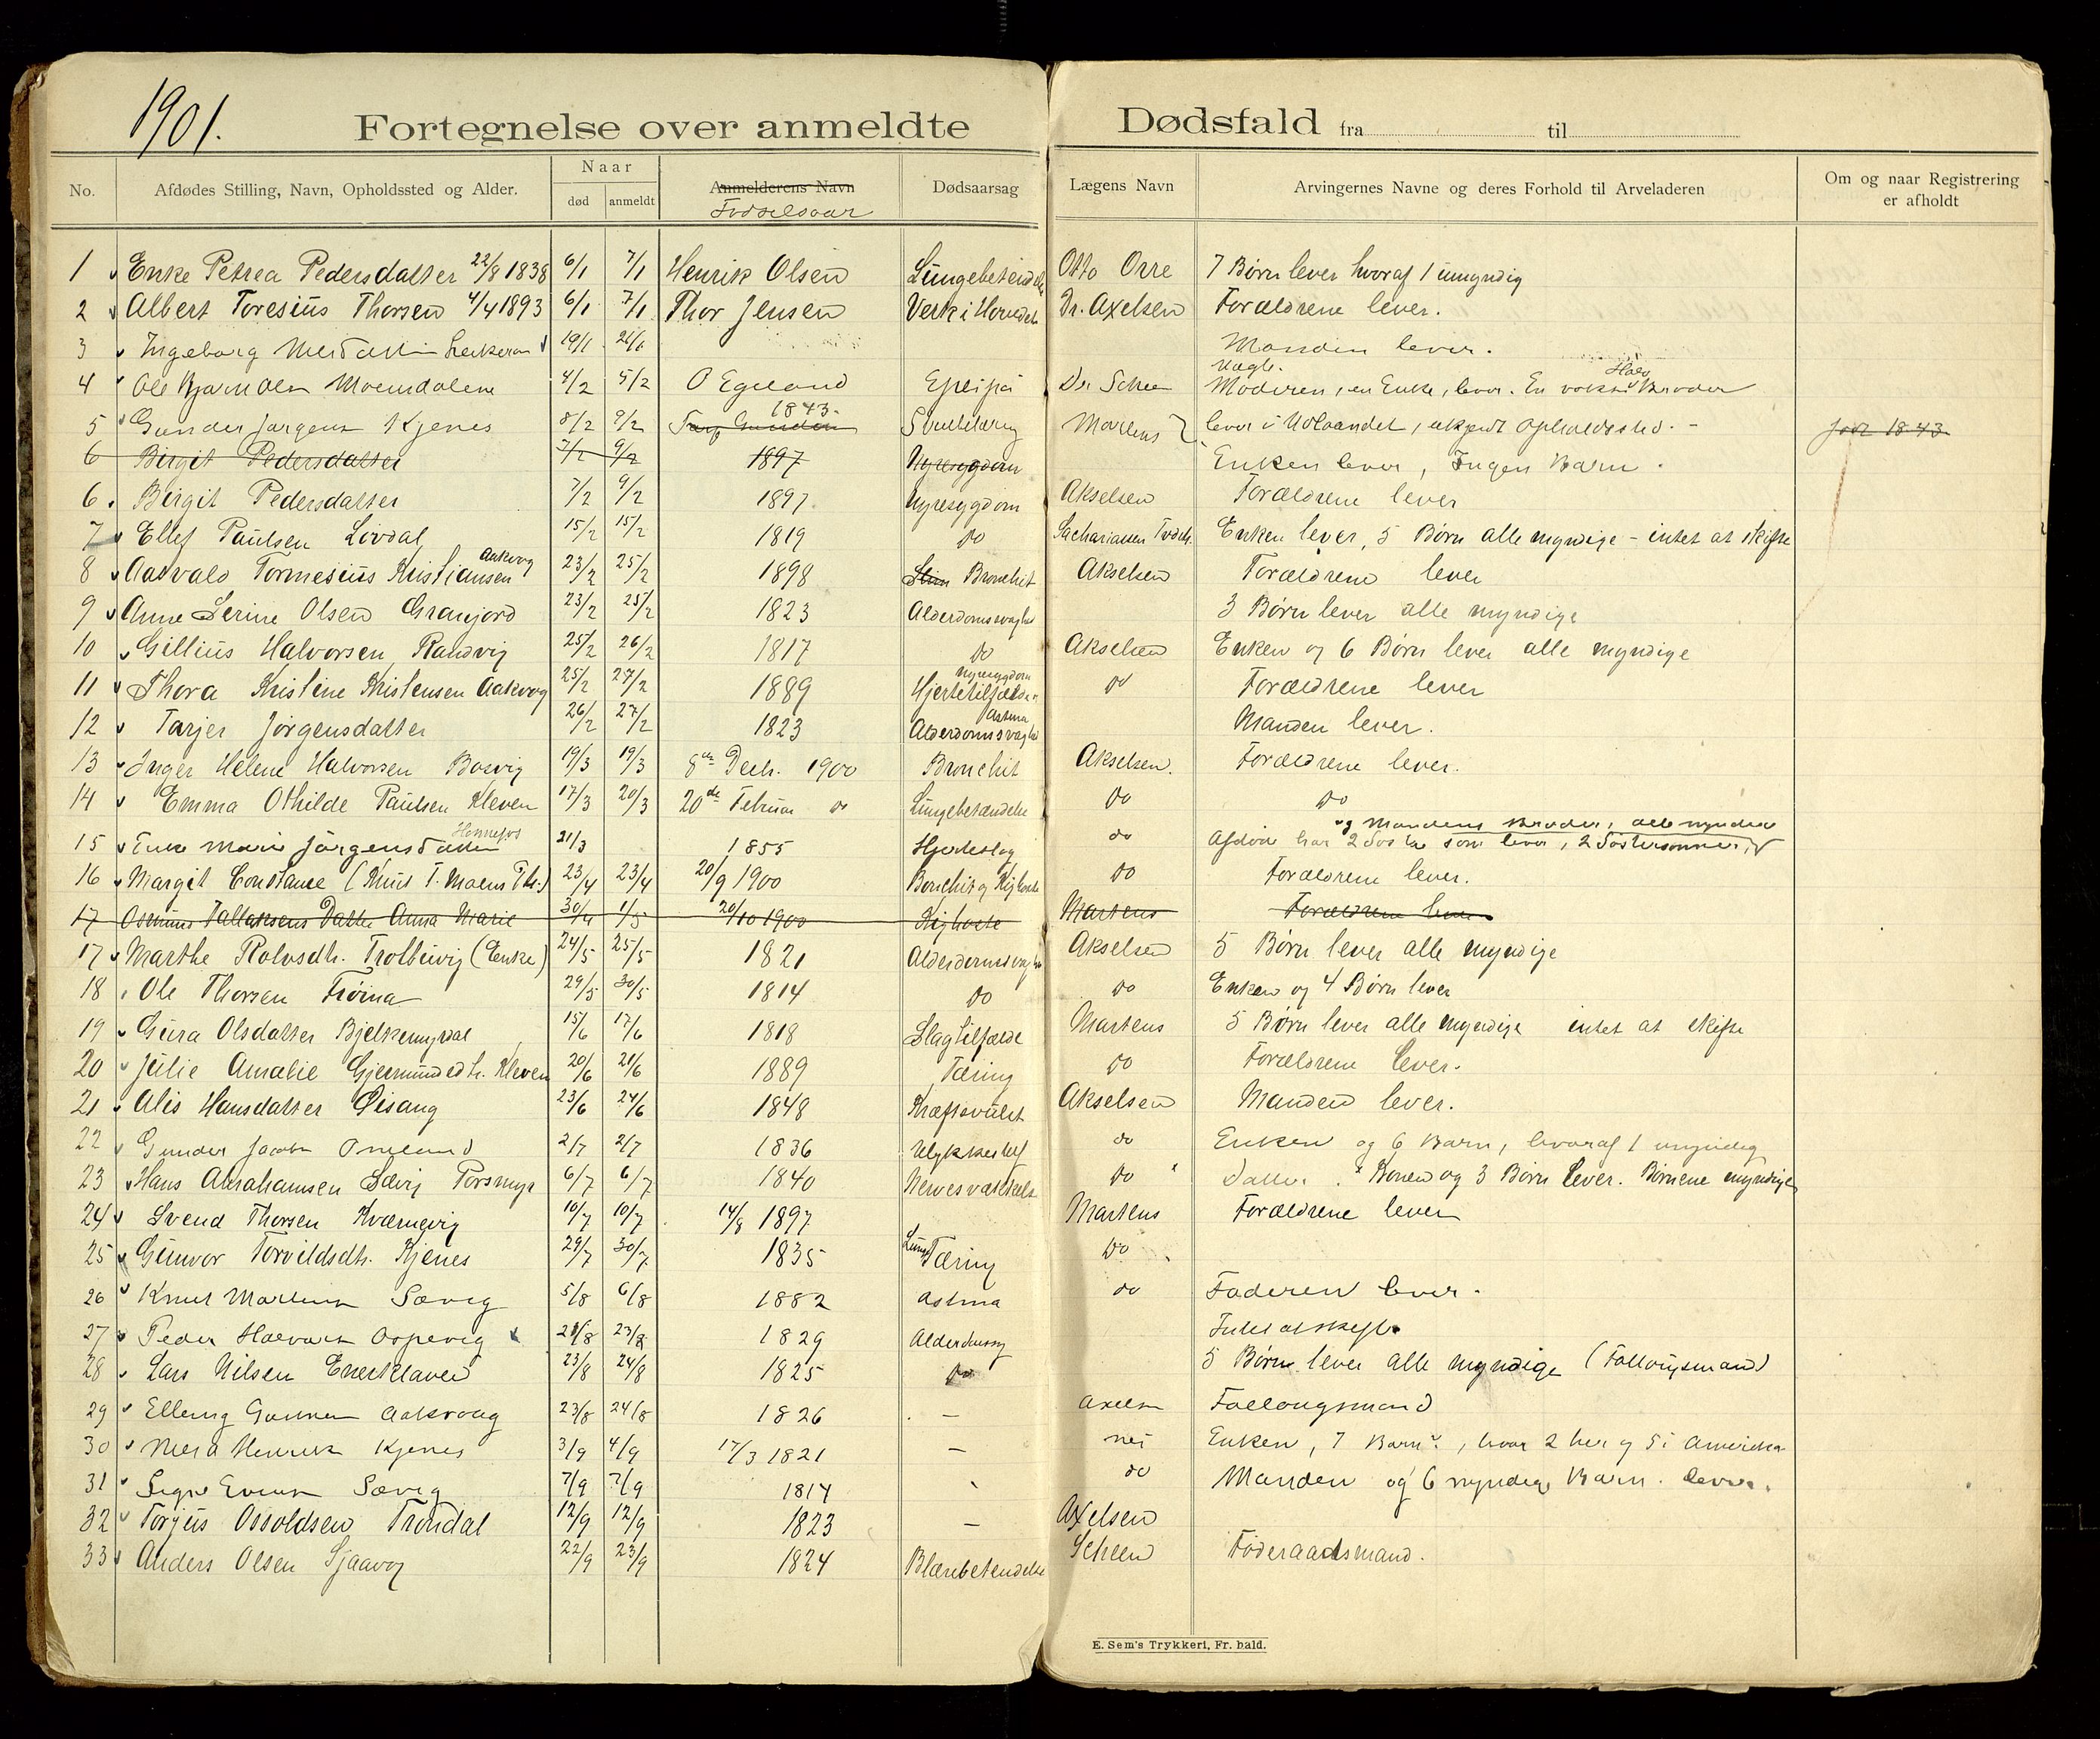 1901.
Fortegnelse over anmeldte Dødsfald fra til
No. Afdødes Stilling, Navn, Opholdssted og Alder. Naar død anmeldt Anmelderens Navn Fødselsaar Dødsaarsag Lægens Navn Arvingernes Navne og deres Forhold til Arveladeren Om og naar Registrering er afholdt
1 Enke Petrea Pedersdatter 22/8 1838 6/1 7/1 Henrik Olsen Lungebetændelse Otto Orre 7 Børn lever hvoraf 1 umyndig
2 Albert Toresius Thorsen 4/4 1893 6/1 7/1 Thor Jensen Verk i Hovedet Dr. Axelsen Forældrene lever.
3 Ingeborg 19/1 21/1 Manden lever.
4 Ole Bjørn Olsen Moendalene 4/2 5/2 O Egeland Epilepsi Dr Scheen Moderen, en Enke, lever. En voksen Halv Broder
5 Gunder Jørgensen Kjenes 8/2 9/2 1843. Strubetæring Martens lever i Udlandet, ukjent Opholdssted. - født 1843
6 Birgit Pedersdatter 7/2 9/2 1897 Nyresygdom Enken lever, Ingen Børn.
6. Birgit Pedersdatter 7/2 9/2 1897. Nyresygdom Akselsen Forældrene lever
7 Ellef Paulsen Lovdal 15/2 15/2 1819 do Sachariassen Tvedestr. Enken lever, 5 Børn alle myndige - intet at skifte
8 Aasvald Tormesius Kristiansen Aakvog 23/2 25/2 1898 Bronchit Akselsen Forældrene lever
9 Anne Serine Olsen Granjord 23/2 25/2 1823 Alderdomsvaghed 3 Børn lever alle myndige
10 Gillius Halvorsen Randvig 25/2 26/2 1817 do Akselsen Enken og 6 Børn lever alle myndige
11 Thora Kristine Kristensen Aakvog 25/2 27/2 1889 Nyresygdom Hjertetilfælde do Forældrene lever
12 Tarjer Jørgensdatter 26/2 27/2 1823 Astma Alderdomsvaghed Manden lever.
13 Inger Helene Halvorsen Bosvig 19/3 19/3 8de Decb. 1900 Bronchit Akselsen. Forældrene lever.
14 Emma Othilde Paulsen Kleven 17/3 20/3 20de Februar do Lungebetændelse do do
15 Enke Marie Jørgensdatter 21/3 1855 Hjerteslag do Afdøde har 2 Søstre som lever, 2 Søstersønner, og Mandens Broder, alle myndige
16 Margit Constance (Knut T. Moens Dtr.) 23/4 23/4 20/9 1900 Bronchit og Kighoste do Forældrene lever.
17 Osmund Tallaksens Datter Anna Marie 30/4 1/5 20/10 1900 Kighoste Martens Forældrene lever
17 Marthe Rolvsdtr. Trolbervig (Enke) 24/5 25/5 1821 Alderdomsvaghed Akselsen 5 Børn lever alle myndige
18 Ole Thorsen Frøina 29/5 30/5 1814 do do Enken og 4 Børn lever
19 Gura Olsdatter Bjelkemyrdal 15/6 17/6 1818 Slagtilfælde Martens 5 Børn lever alle myndige intet at skifte
20 Julie Amalie Gjermundsdtr. Kleven 20/6 21/6 1889 Tæring do Forældrene lever.
21 Alis Hansdatter Øisang 23/6 24/6 1848 Kræftsvulst Akselsen Manden lever.
22 Gunder Jacobsen Omlund 2/7 2/7 1836 Ulykkestilf do Enken og 6 Børn, hvoraf 1 umyndig
23 Hans Abrahamsen Sævig Porsmyr 6/7 6/7 1840 Nervesvækkelse do Datter. Konen og 3 Børn lever. Børnene myndige
24 Svend Thorsen Kværnevig 10/7 10/7 14/8 1897 Martens Forældrene lever
25 Gunvor Torvildsdtr. Kjenes 29/7 30/7 1835 Lunge Tæring do
26 Knut Martensen Sævig 5/8 6/8 1882 Astma do Faderen lever.
27 Peder Halvorsen Ospevig 21/8 23/8 1829 Alderdoms Intet at skifte
28 Lars Nilsen Enerklaven 23/8 24/8 1825 do 5 Børn lever alle myndige (Fattigmand)
29 Elling Gunnersen Aakvaag 23/8 24/8 1826 — Axelsen
30 Henriksen Kjenes 3/9 4/9 17/3 1821 — nei Enken, 7 Børn, hvor 2 her og 5 i Amerika
31 Signe Evensen Sævig 7/9 7/9 1814 do Manden og 6 myndige Børn lever.
32 Torjus Ossoldsen Trondal 12/9 12/9 1823 — Axelsen
33 Anders Olsen Sjaavog 22/9 23/9 1824 Blærebetændelse Scheen Føderaadsmand.
E. Sem's Trykkeri, Fr. hald.